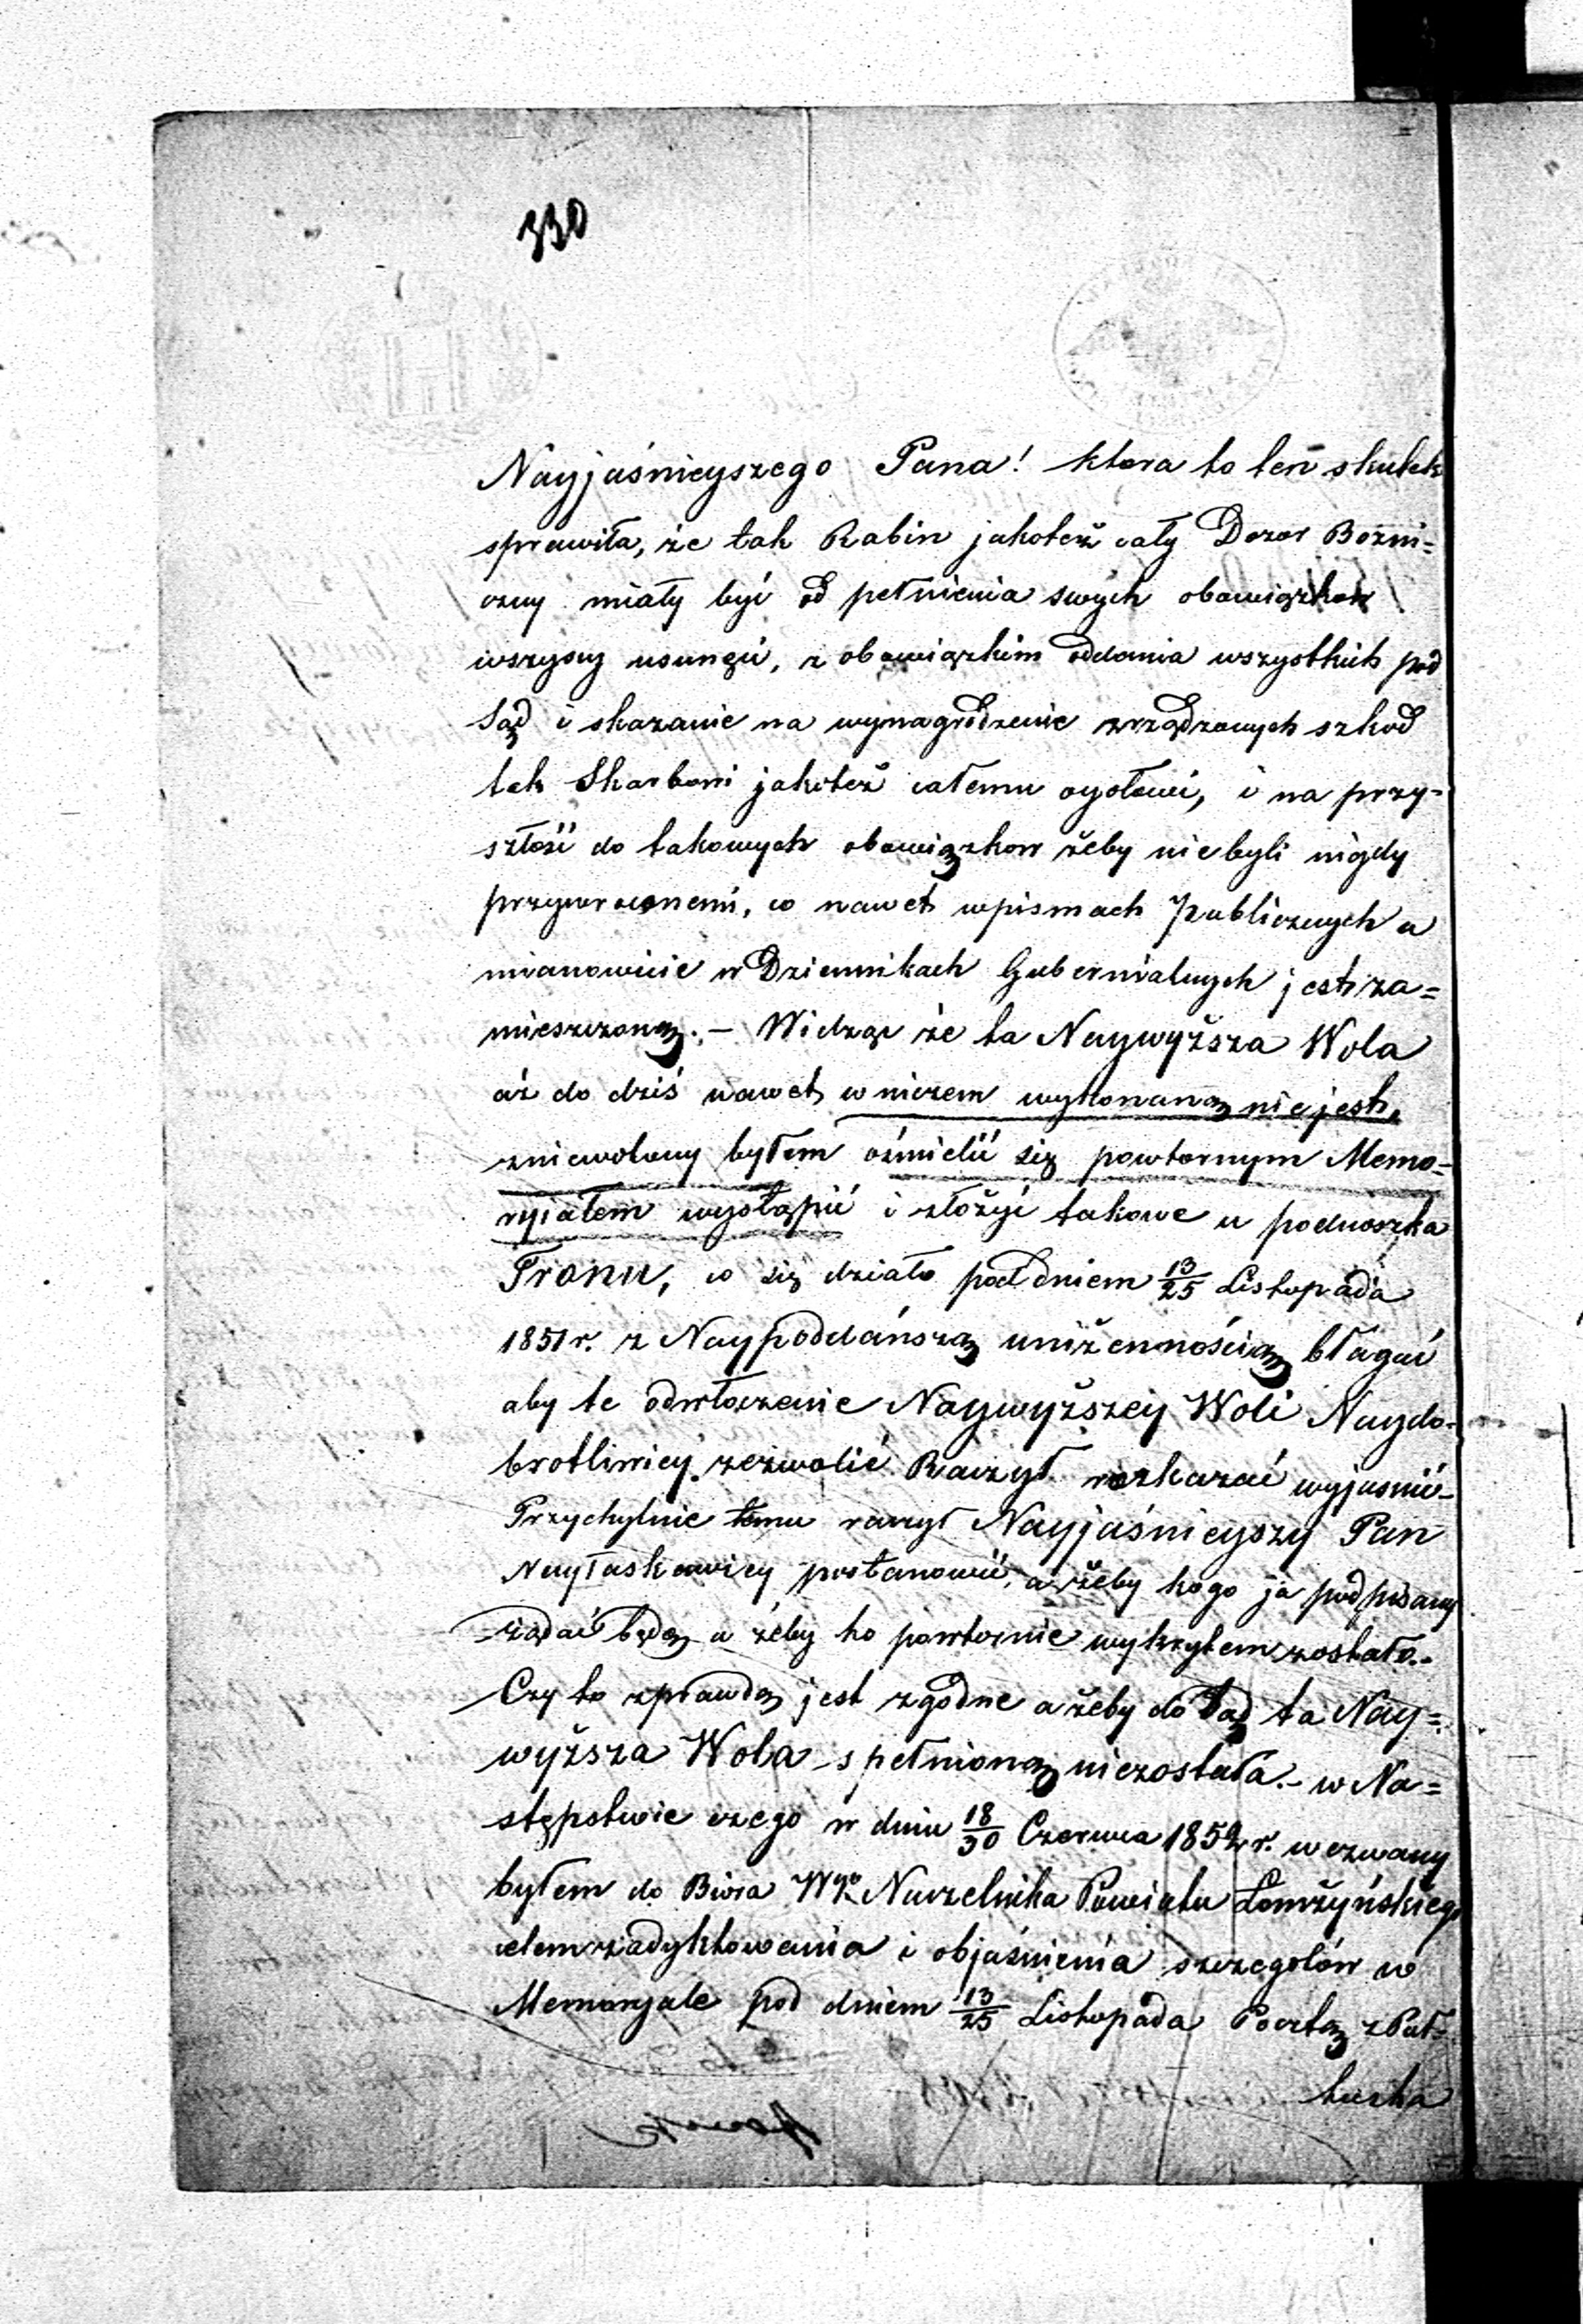 330
Nayjaśnieyszego Pana! ktora to ten skutek
sprawiła, że tak Rabin jakoteż cały Dozor Bożni=
czny miały być od pełnienia swych obowiązkow
wszyscy usunęći, z obowiązkim oddania wszystkich pod
Sąd i skazanie na wynagrodzenie zrządzonych szkod
tak Skarbowi jakoteż całemu ogołowi, i na przy=
szłość do takowych obowiązkow żeby niebyli nigdy
przywroconemi, co nawet wpismach Publicznych a
mianowicie w Dziennikach Gubernialnych jest za=
mieszczoną.- Widząc że ta Naywyższa Wola
aż do dziś nawet w niczem wykonaną nie jest,
zniewolony byłem ośmielić się powtornym Memo=
ryiałem wystąpić i złożyć takowe u podnoszka
Tronu, co się działo pod dniem 13/25 Listopada
1851 r. z Naypoddańszą uniżennością błagać
aby te odwłoczenie Naywyższey Woli Naydo=
brotliwiey zezwolić Raczył rozkazać wyjasnić-
Przychylnie temu raczył Nayjaśnieyszy Pan
Nayłaskawiey postanowić, ażeby kogo ja podpisany
żądać będą a żeby to powtornie wykrytem zostało.-
Czy to zprawdą jest zgodne ażeby do tąd ta Nay=
wyższa Wola spełnioną niezostała.- w Na=
stępstwie czego w dniu 18/30 Czerwca 1852 r. wezwany
byłem do Biora Wgo Naczelnika Powiatu Łomżyńskiego
celem zadyktowania i objaśnienia szczegołów w
Memoryale pod dniem 13/25 Listopada Pocztą z Puł=
tuska